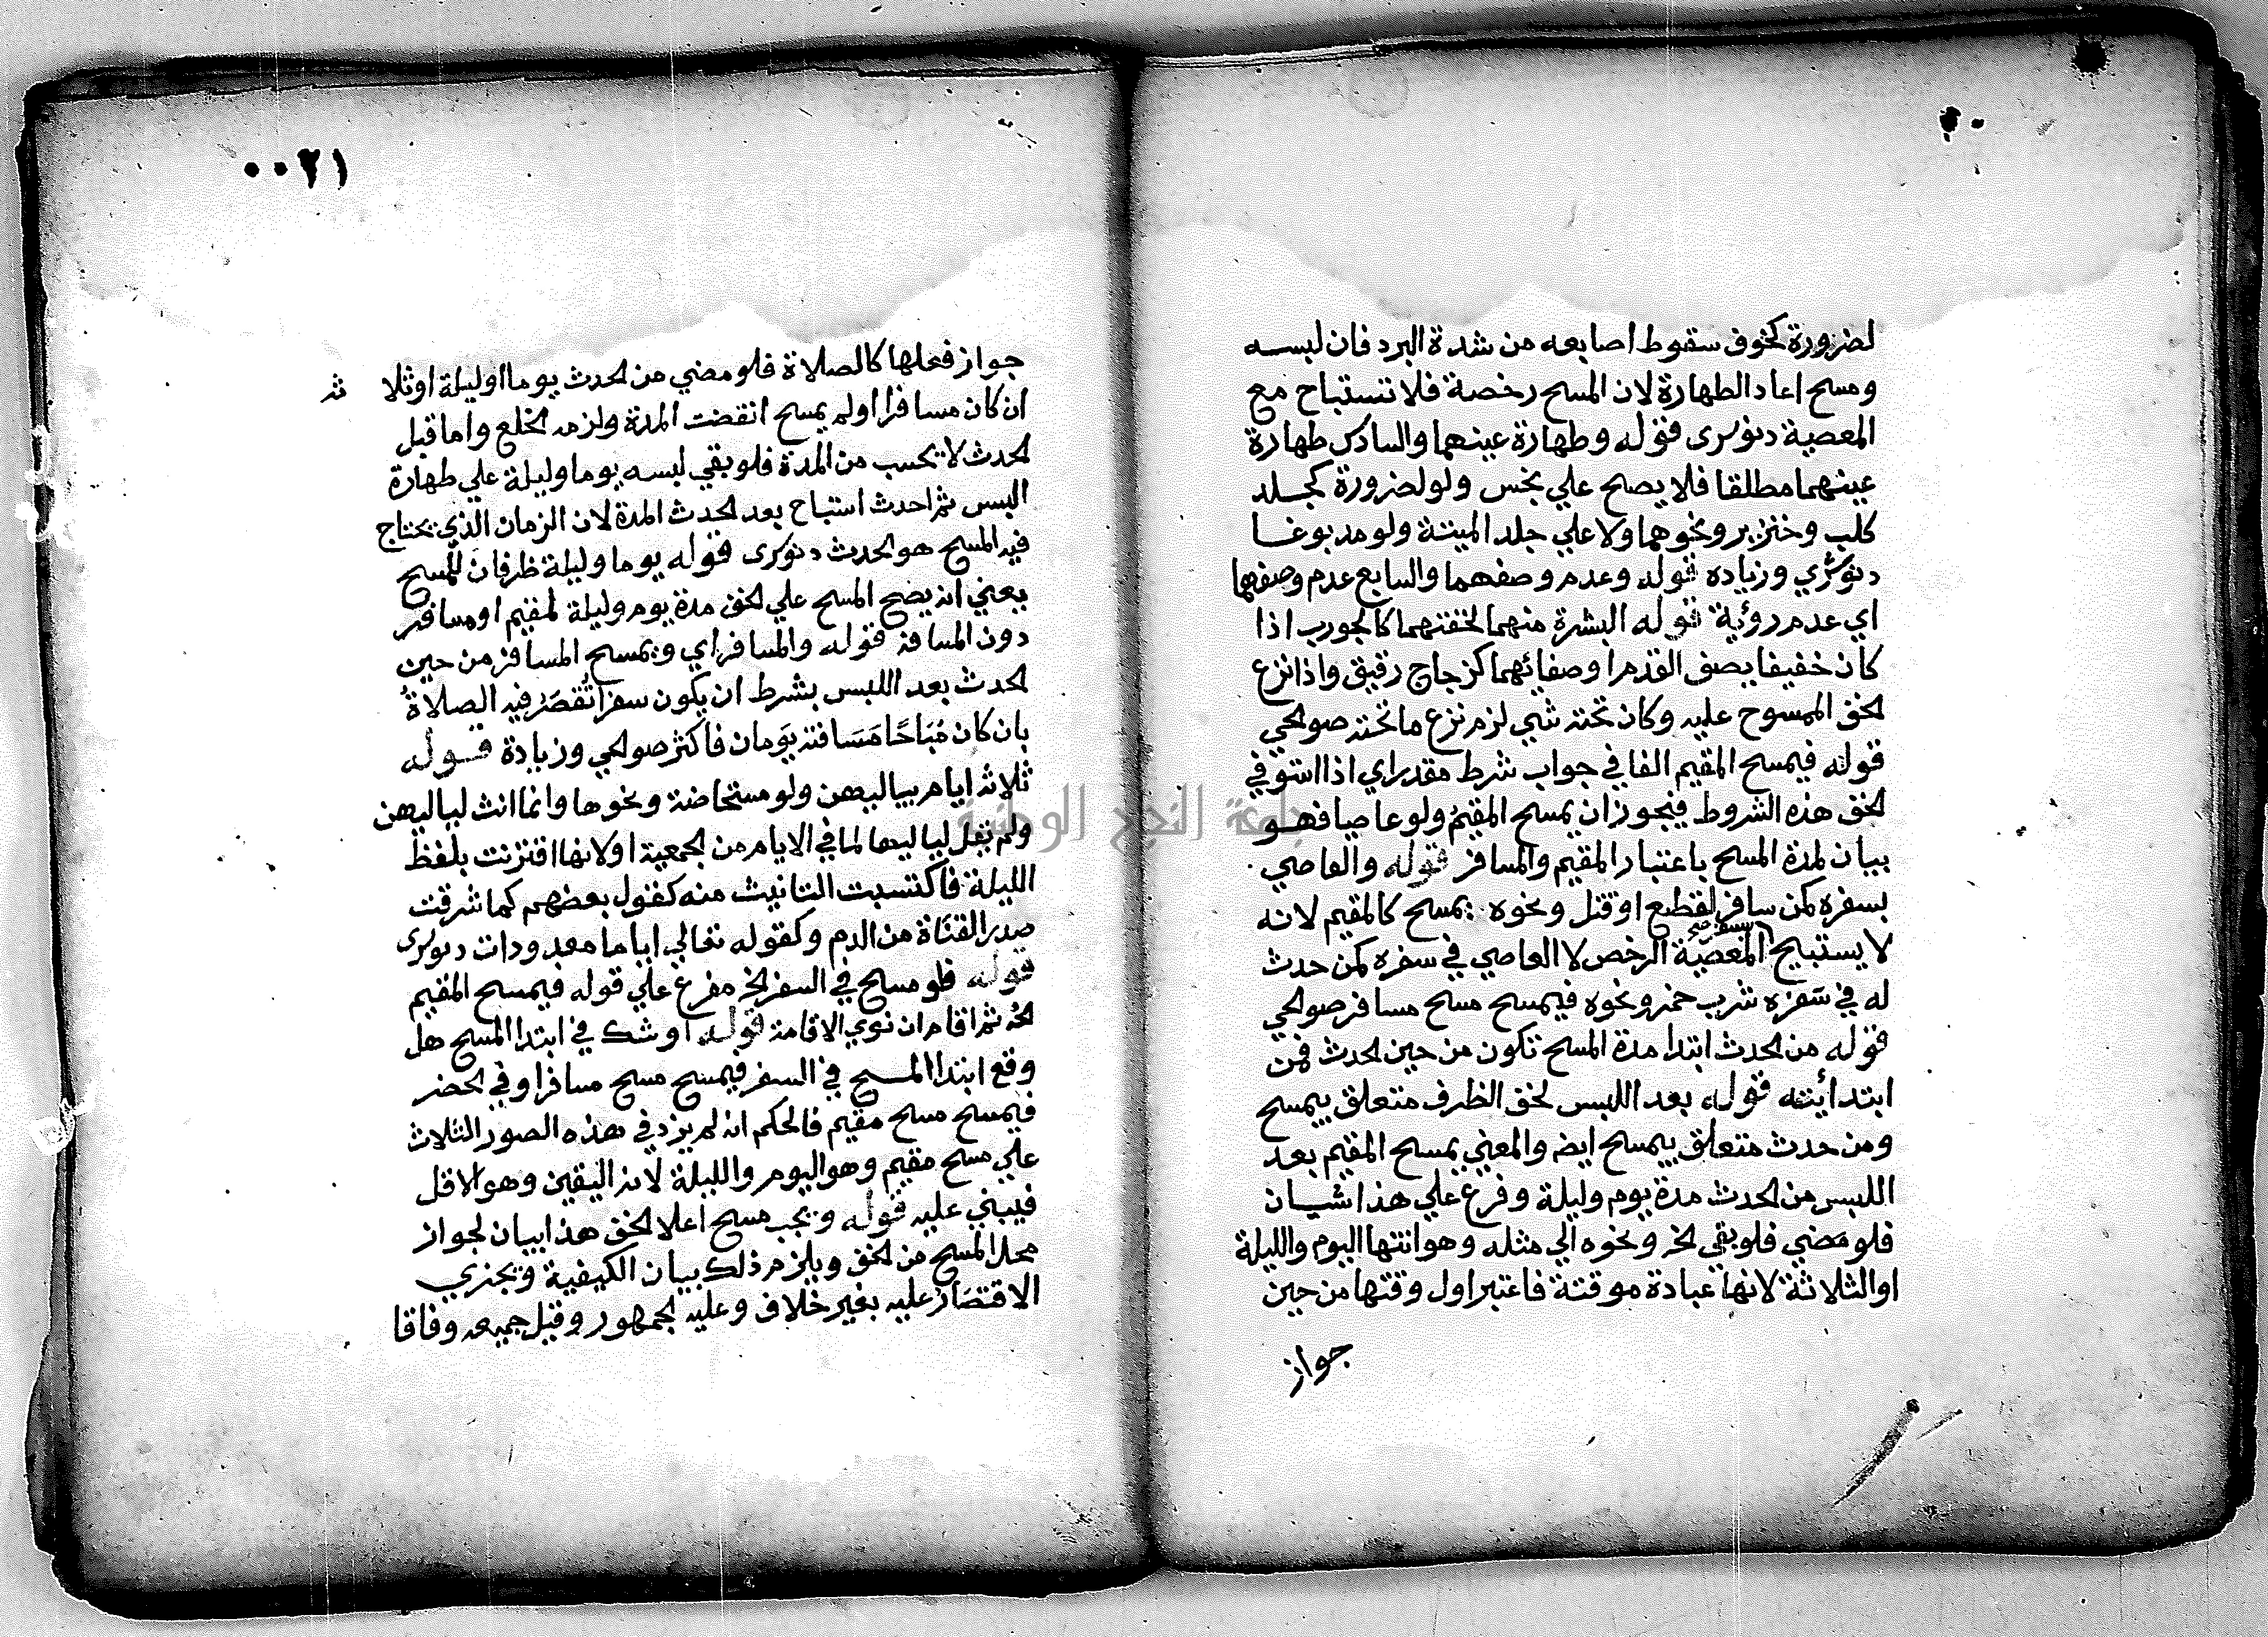 لضرورة كخوف سقوط اصابعه من شدة البرد فان لبسه
ومسح اعاد الطهارة لان المسح رخصة فلا تستباح مع
المعصية دنوشرى قوله وطهارة عينهما والسادس طهارة
عينهما مطلقا فلا يصح علي نجس ولو لضرورة كجلد
كلب وخنزير ونحوهما ولا علي جلد الميتة ولو مدبوغا
دنوشري وزياده قوله وعدم وصفهما والسابع عدم وصفهما
اي عدم رؤية قوله البشرة منهما لخفتهما كالجورب اذا
كان خفيفا يصف القدم او صفائهما كزجاج رقيق واذا نزع
الخف الممسوح عليه وكان تحته شي لزم نزع ما تحته صوالحي
قوله فيمسح المقيم الفا في جواب شرط مقدر اي اذا استوفي
الخف هذه الشروط فيجوز ان يمسح المقيم ولو عاصيا فهو
بيان لمدة المسح باعتبار المقيم والمسافر قوله والعاصي
بسفره كمن سافر لقطع او قتل ونحوه يمسح كالمقيم لانه
لا يستبيح المعصية الرخص لا العاصي في سفره كمن حدث
له في سفره شرب خمر ونحوه فيمسح مسح مسافر صوالحي
قوله من الحدث ابتدا مدة المسح تكون من حين الحدث فمن
ابتدائيته قوله بعد اللبس الخف الظرف متعلق بيمسح
ومن حدث متعلق بيمسح ايضه والمعني يمسح المقيم بعد
اللبس من الحدث مدة يوم وليلة وفرع علي هذا شيان
فلو مضي فلو بقي الخ ونحوه الي مثله وهو انتها اليوم والليلة
او الثلاثة لانها عبادة موقتة فاعتبر اول وقتها من حين
جواز
٠٠٢١
جواز فعلها كالصلاة فلو مضي من الحدث يوما او ليلة او ثلاثة
ان كان مسافرا ولم يمسح انقضت المدة ولزمه الخلع واما قبل
الحدث لا تحسب من المدة فلو بقي لبسه يوما وليلة علي طهارة
البس ثم احدث استباح بعد الحدث المدة لان الزمان الذي يحتاج
فيه المسح هو الحدث دنوشرى قوله يوما وليلة ظرفان للمسح
يعني انه يصح المسح علي الخف مدة يوم وليلة لمقيم او مسافر
دون المسافة قوله والمسافر اي ويمسح المسافر من حين
الحدث بعد اللبس بشرط ان يكون سفرا تُقصَرُ فيه الصلاةُ
بان كان مُبَاحًا مَسَافته يَومان فاكثر صوالحي وزيادة قوله
ثلاثه ايام بيا ليهن ولو مستحاضة ونحوها وانما انث لياليهن
ولم يقل لياليها لما في الايام من الجمعية او لانها اقترنت بلفظ
الليلة فاكتسبت التانيث منه كقول بعضهم كما شرقت
صدر القناة من الدم وكقوله تعالي اياما معدودات دنوشرى
قوله فلو مسح في السفر الخ مفرع علي قوله فيمسح المقيم
الخ ثم اقام ان نوي الاقامة قوله او شك في ابتدا المسح هل
وقع ابتدا المسح في السفر فيمسح مسح مسافر او في الحضر
فيمسح مسح مقيم فالحكم انه لم يزد في هذه الصور الثلاث
علي مسح مقيم وهو اليوم والليلة لانه اليقين وهو الاقل
فيبني عليه قوله ويجب مسح اعلا الخف هذا بيان لجواز
محل المسح من الخف ويلزم ذلك بيان الكيفية ويجزي
الاقتصَارُ عليه بغير خلاف وعليه الجمهور وقيل جميعه وفاقا
جامعة النجاح الوطنية